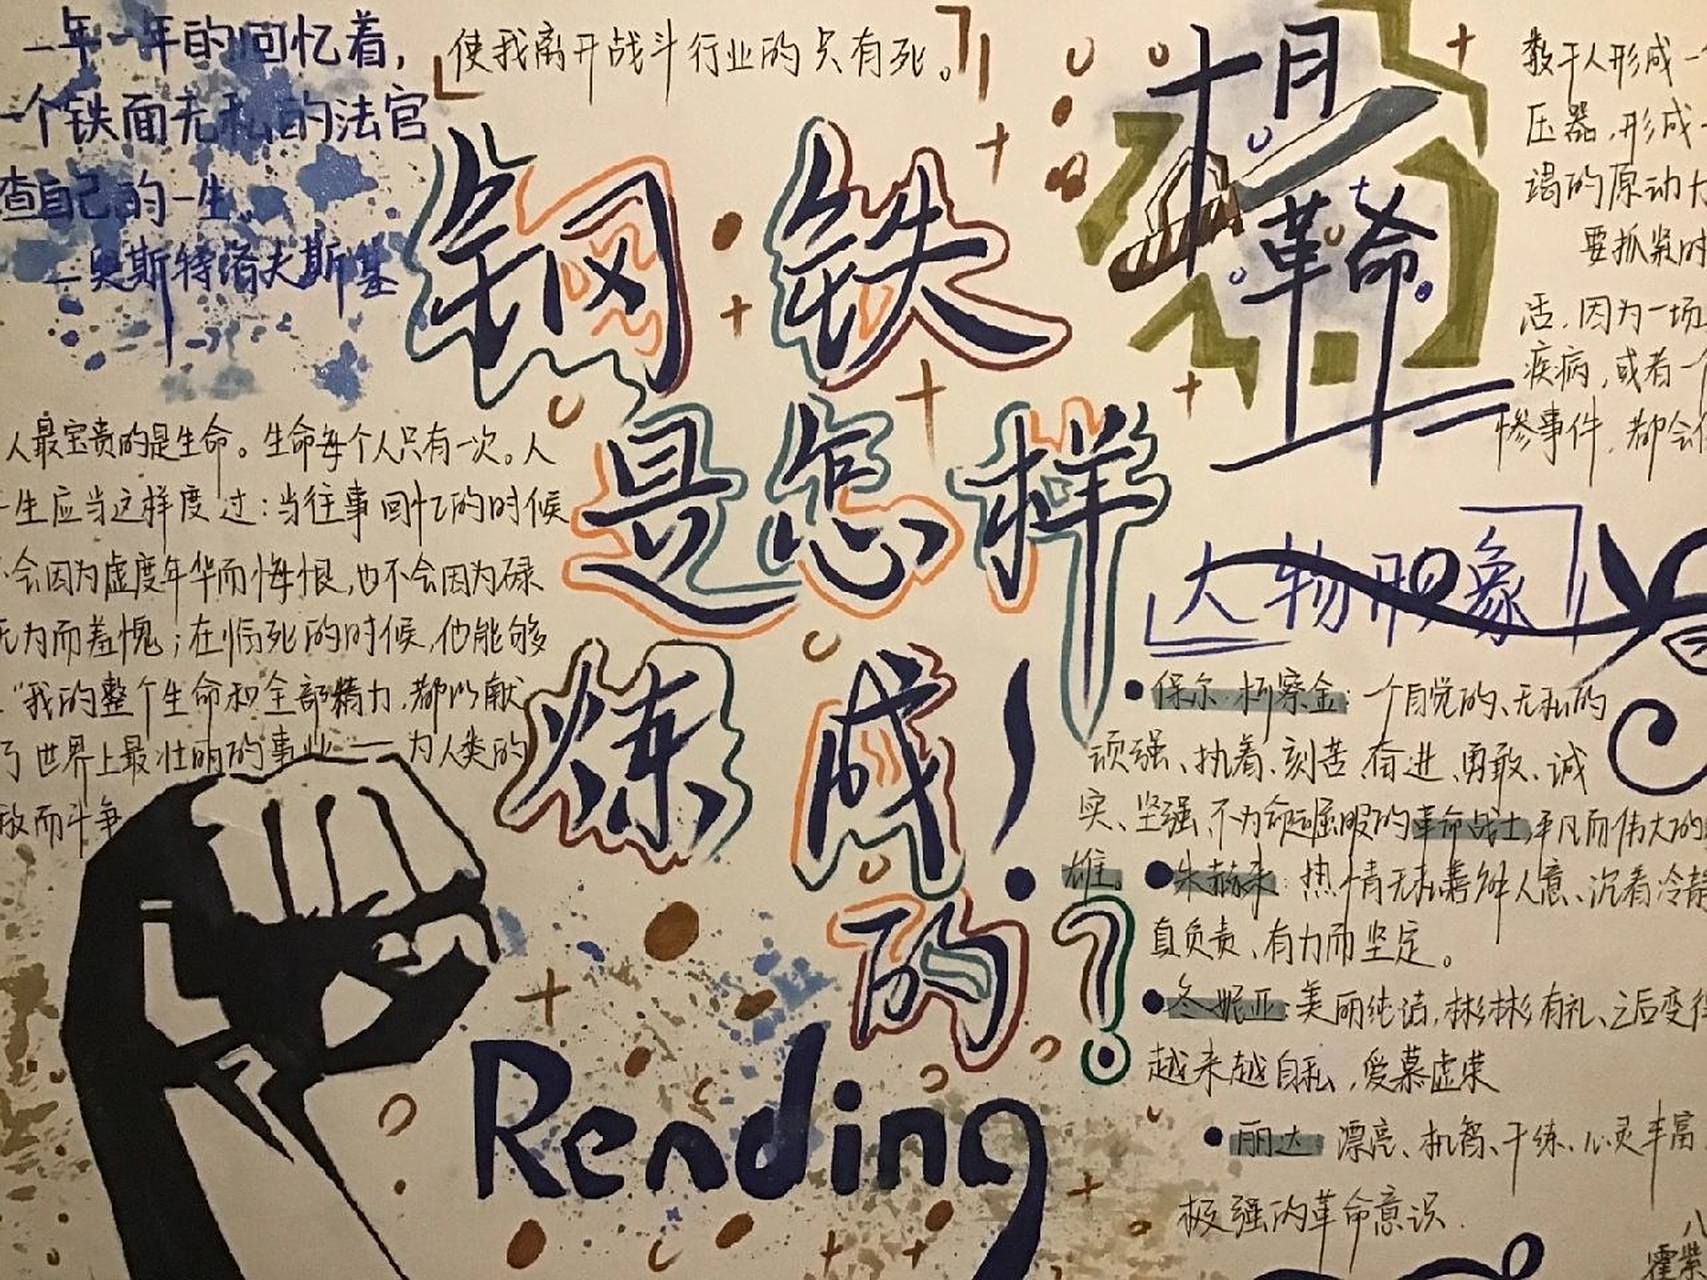 一年一年的回忆着,
一个铁面无私的法官
查自己的一生。
—奥斯特洛夫斯基
「使我离开战斗行业的只有死。」
钢·铁
是怎样
炼成!
的?
Rending
人最宝贵的是生命。生命每个人只有一次。人
一生应当这样度过:当往事回忆的时候
不会因为虚度年华而悔恨,也不会因为碌
无为而羞愧;在临死的时候,他能够
:“我的整个生命和全部精力,都以献
了世界上最壮丽的事业——为人类的
放而斗争
十月
革命
数千人形成一
压器,形成一
竭的原动力
要抓紧时
活,因为一场
疾病,或者一个
惨事件,都会使
「人物形象」
•保尔·柯察金:一个自觉的、无私的
顽强、执着、刻苦、奋进、勇敢、诚
实、坚强、不为命运屈服的革命战士,平凡而伟大的
雄。•朱赫来:热情无私善解人意、沉着冷静
真负责、有力而坚定。
•冬妮亚:美丽纯洁,彬彬有礼、之后变得
越来越自私,爱慕虚荣
•丽达 漂亮、机智、干练、心灵丰富
极强的革命意识.
八
霍紫